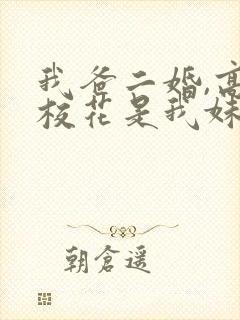 我爸二婚,高
校花是我妹
朝仓遥